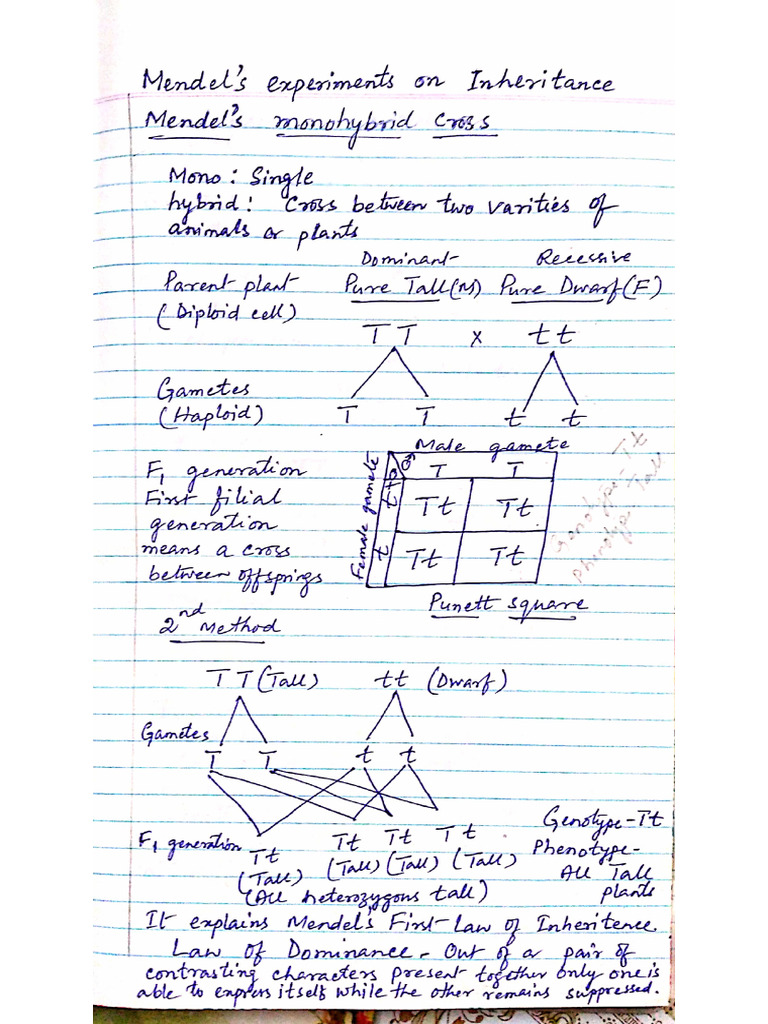 Mendel's experiments on Inheritance
Mendel's monohybrid cross
Mono: Single
hybrid: Cross between two varities of
animals or plants
Dominant Recessive
Parent plant Pure Tall(M) Pure Dwarf(F)
(Diploid cell)
TT x tt
Gametes
(Haploid) T T t t
Male gamete
F1 generation ♀ ♂ T T
First filial Female gamete t Tt Tt
generation
means a cross t Tt Tt
between offsprings
Genotype-Tt
phenotype-Tall
Punett square
2nd Method
TT (Tall) tt (Dwarf)
Gametes
T T t t
F1 generation Tt Tt Tt Tt
(Tall) (Tall) (Tall) (Tall)
(All heterozygous tall)
Genotype-Tt
Phenotype-
All Tall
plants
It explains Mendel's First Law of Inheritence.
Law of Dominance - Out of a pair of
contrasting characters present together only one is
able to express itself while the other remains suppressed.